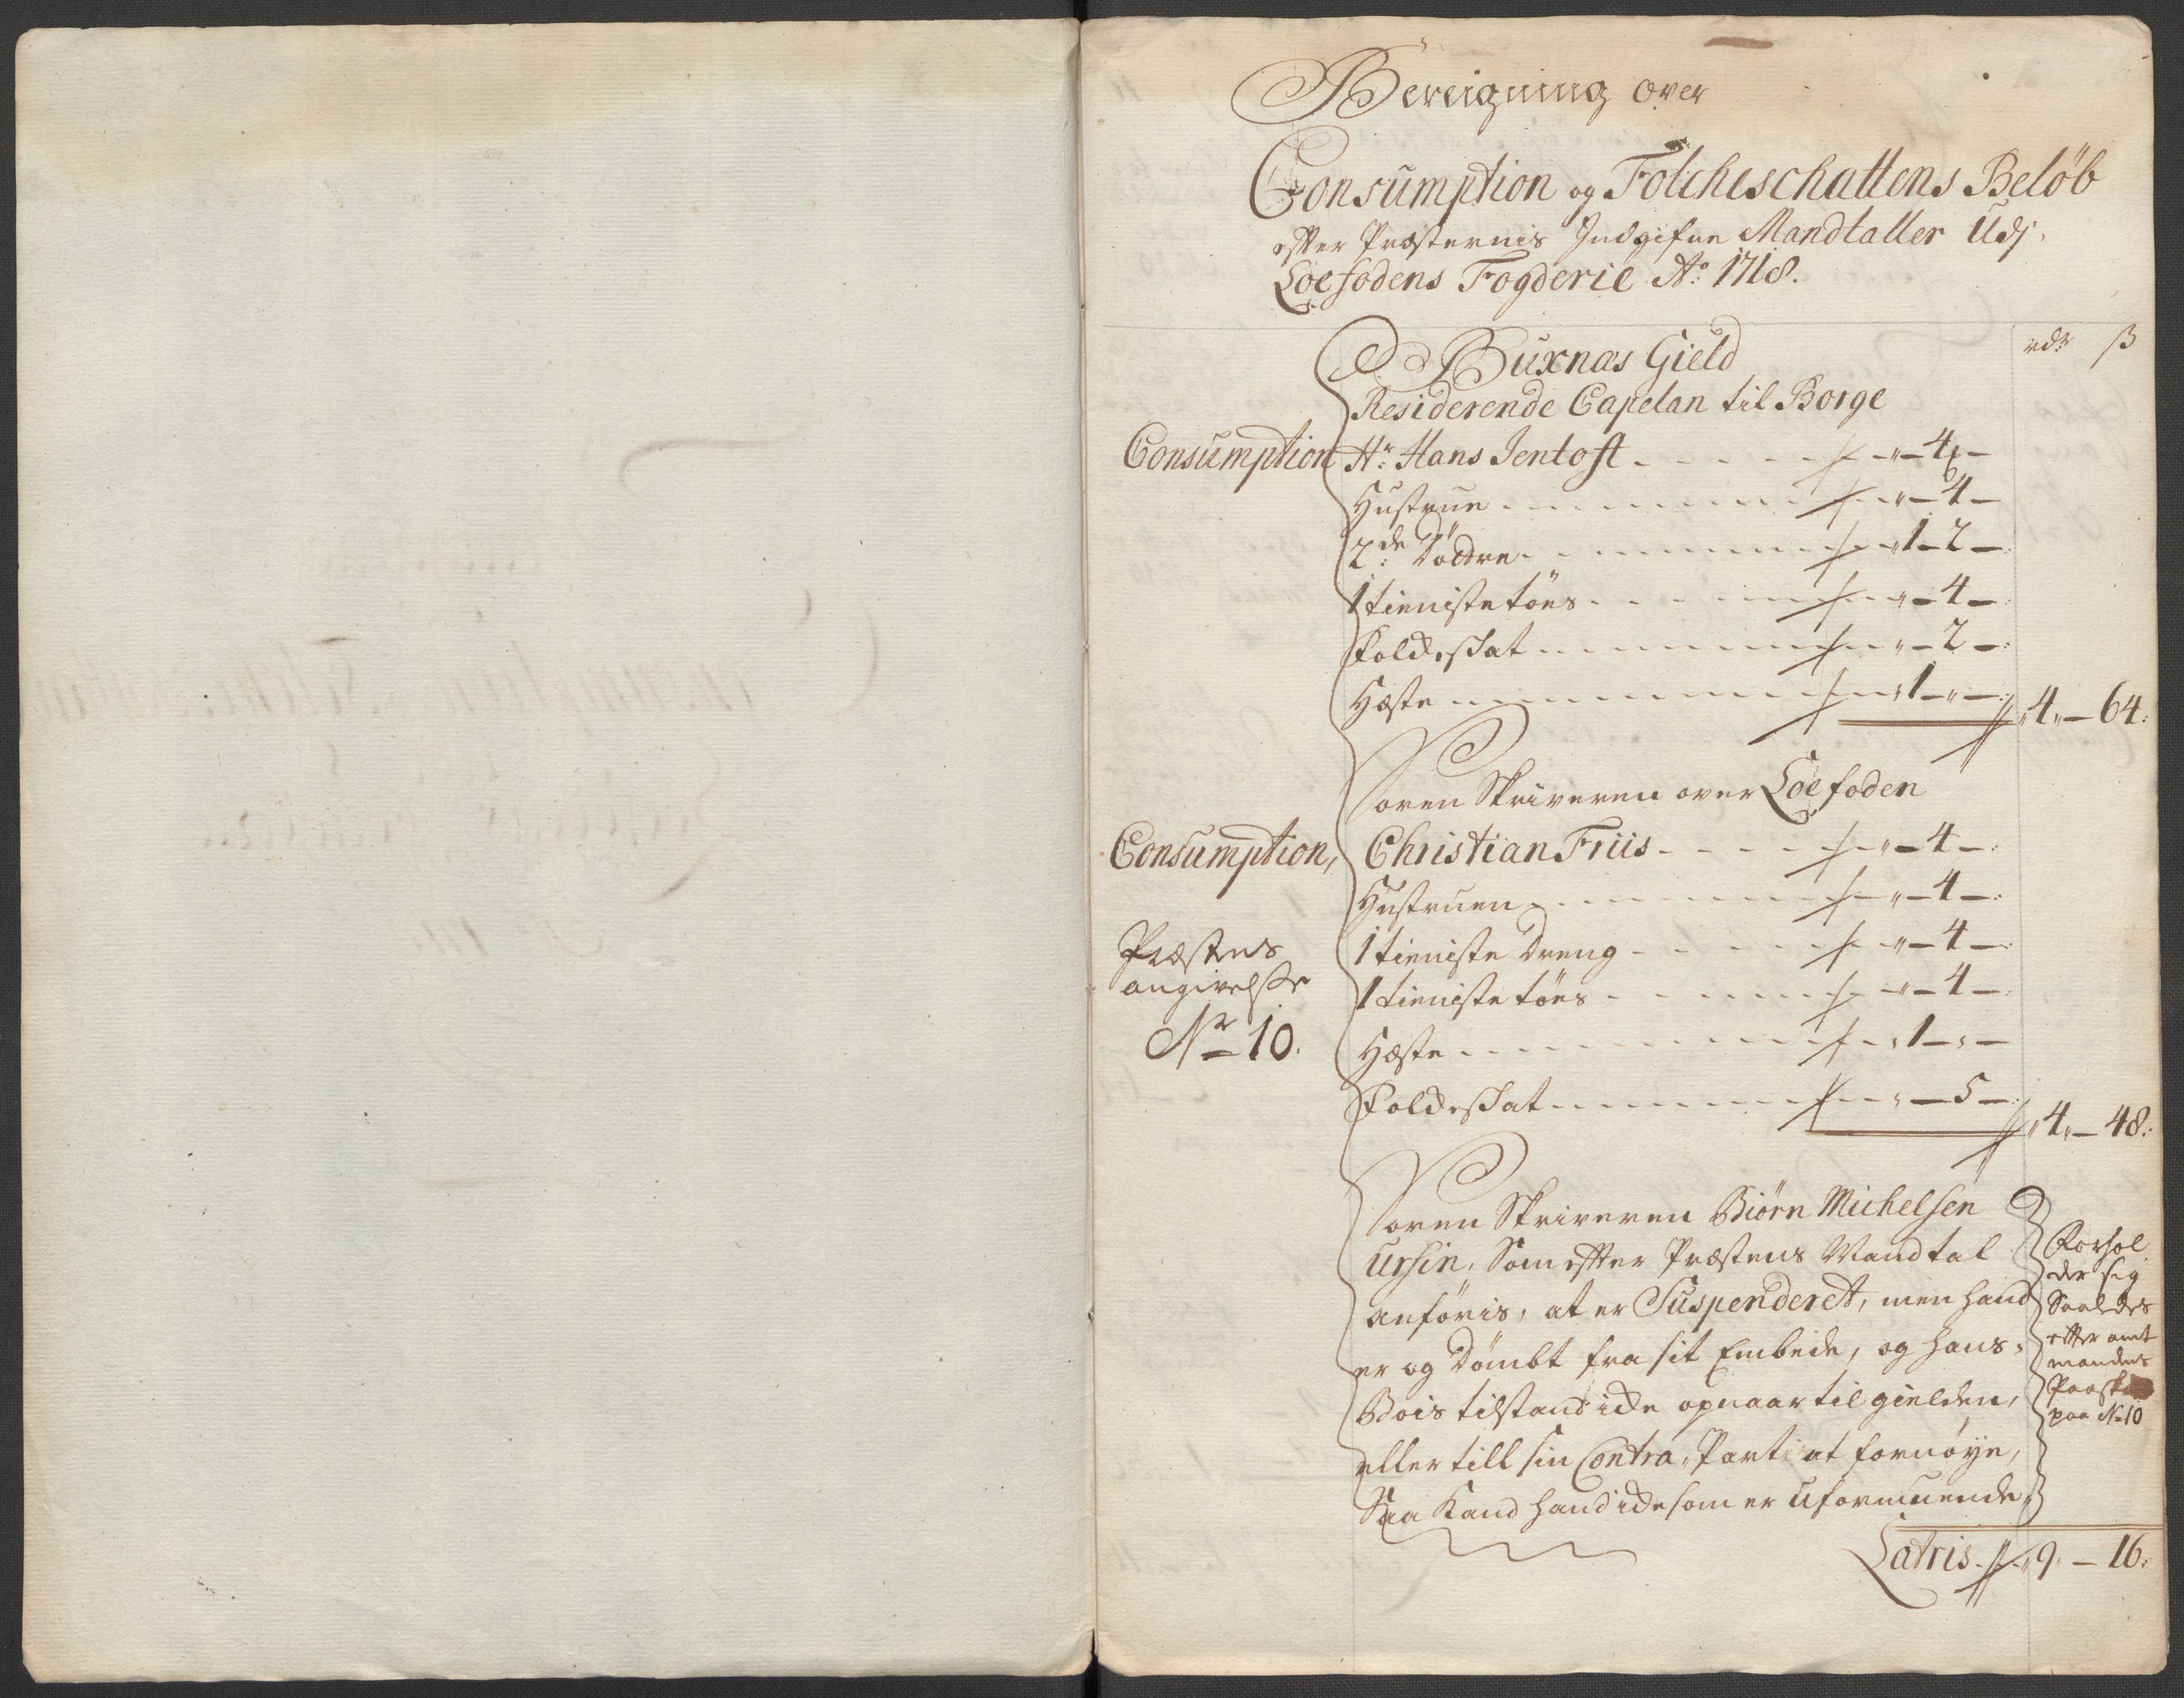 Bereigning over
Consumption og Folcheschattens Beløb
effter Præsternis Indgifne Mandtaller Udj
Loefodens Fogderie Ao: 1718.
rdr ß
Buxnas Gield
Residerende Capelan til Borge
Consumption Hr: Hans Jentoft - - - - - " - 4 -
Hustrue - - - - - " - 4 -
2de: Döttre - - - - - " 1 - 2 -
1 tieniste töes - - - - - " - 4 -
Folckeskat - - - - - " - 2 -
Hæste - - - - - " 1 - " - 4 - 64:
Soren Skriveren over Loefoden
Consumption, Christian Friis - - - - - " - 4 -
Hustruen - - - - - " - 4 -
Præstens
angivelse
Nr 10.
1 tieniste Dreng - - - - - " - 4 -
1 tieniste töes - - - - - " - 4 -
Hæste - - - - - " 1 - " -
Folckeskat - - - - - " - 5 - 4 - 48:
Soren Skriveren Biörn Michelsen
Ursin, Som effter Præstens Mandtal
anföris, at er Suspenderet, men hand
er og Dömbt fra sit Embede, og hans
Bois tilstand icke opnaar til gielden,
eller till sin Contra, Part at fornöye,
Saa Kand hand icke som er Uformuende
Forhol
der sig
Saaledes
effter amt
mandens
paa No 10
Latris - 9 - 16: